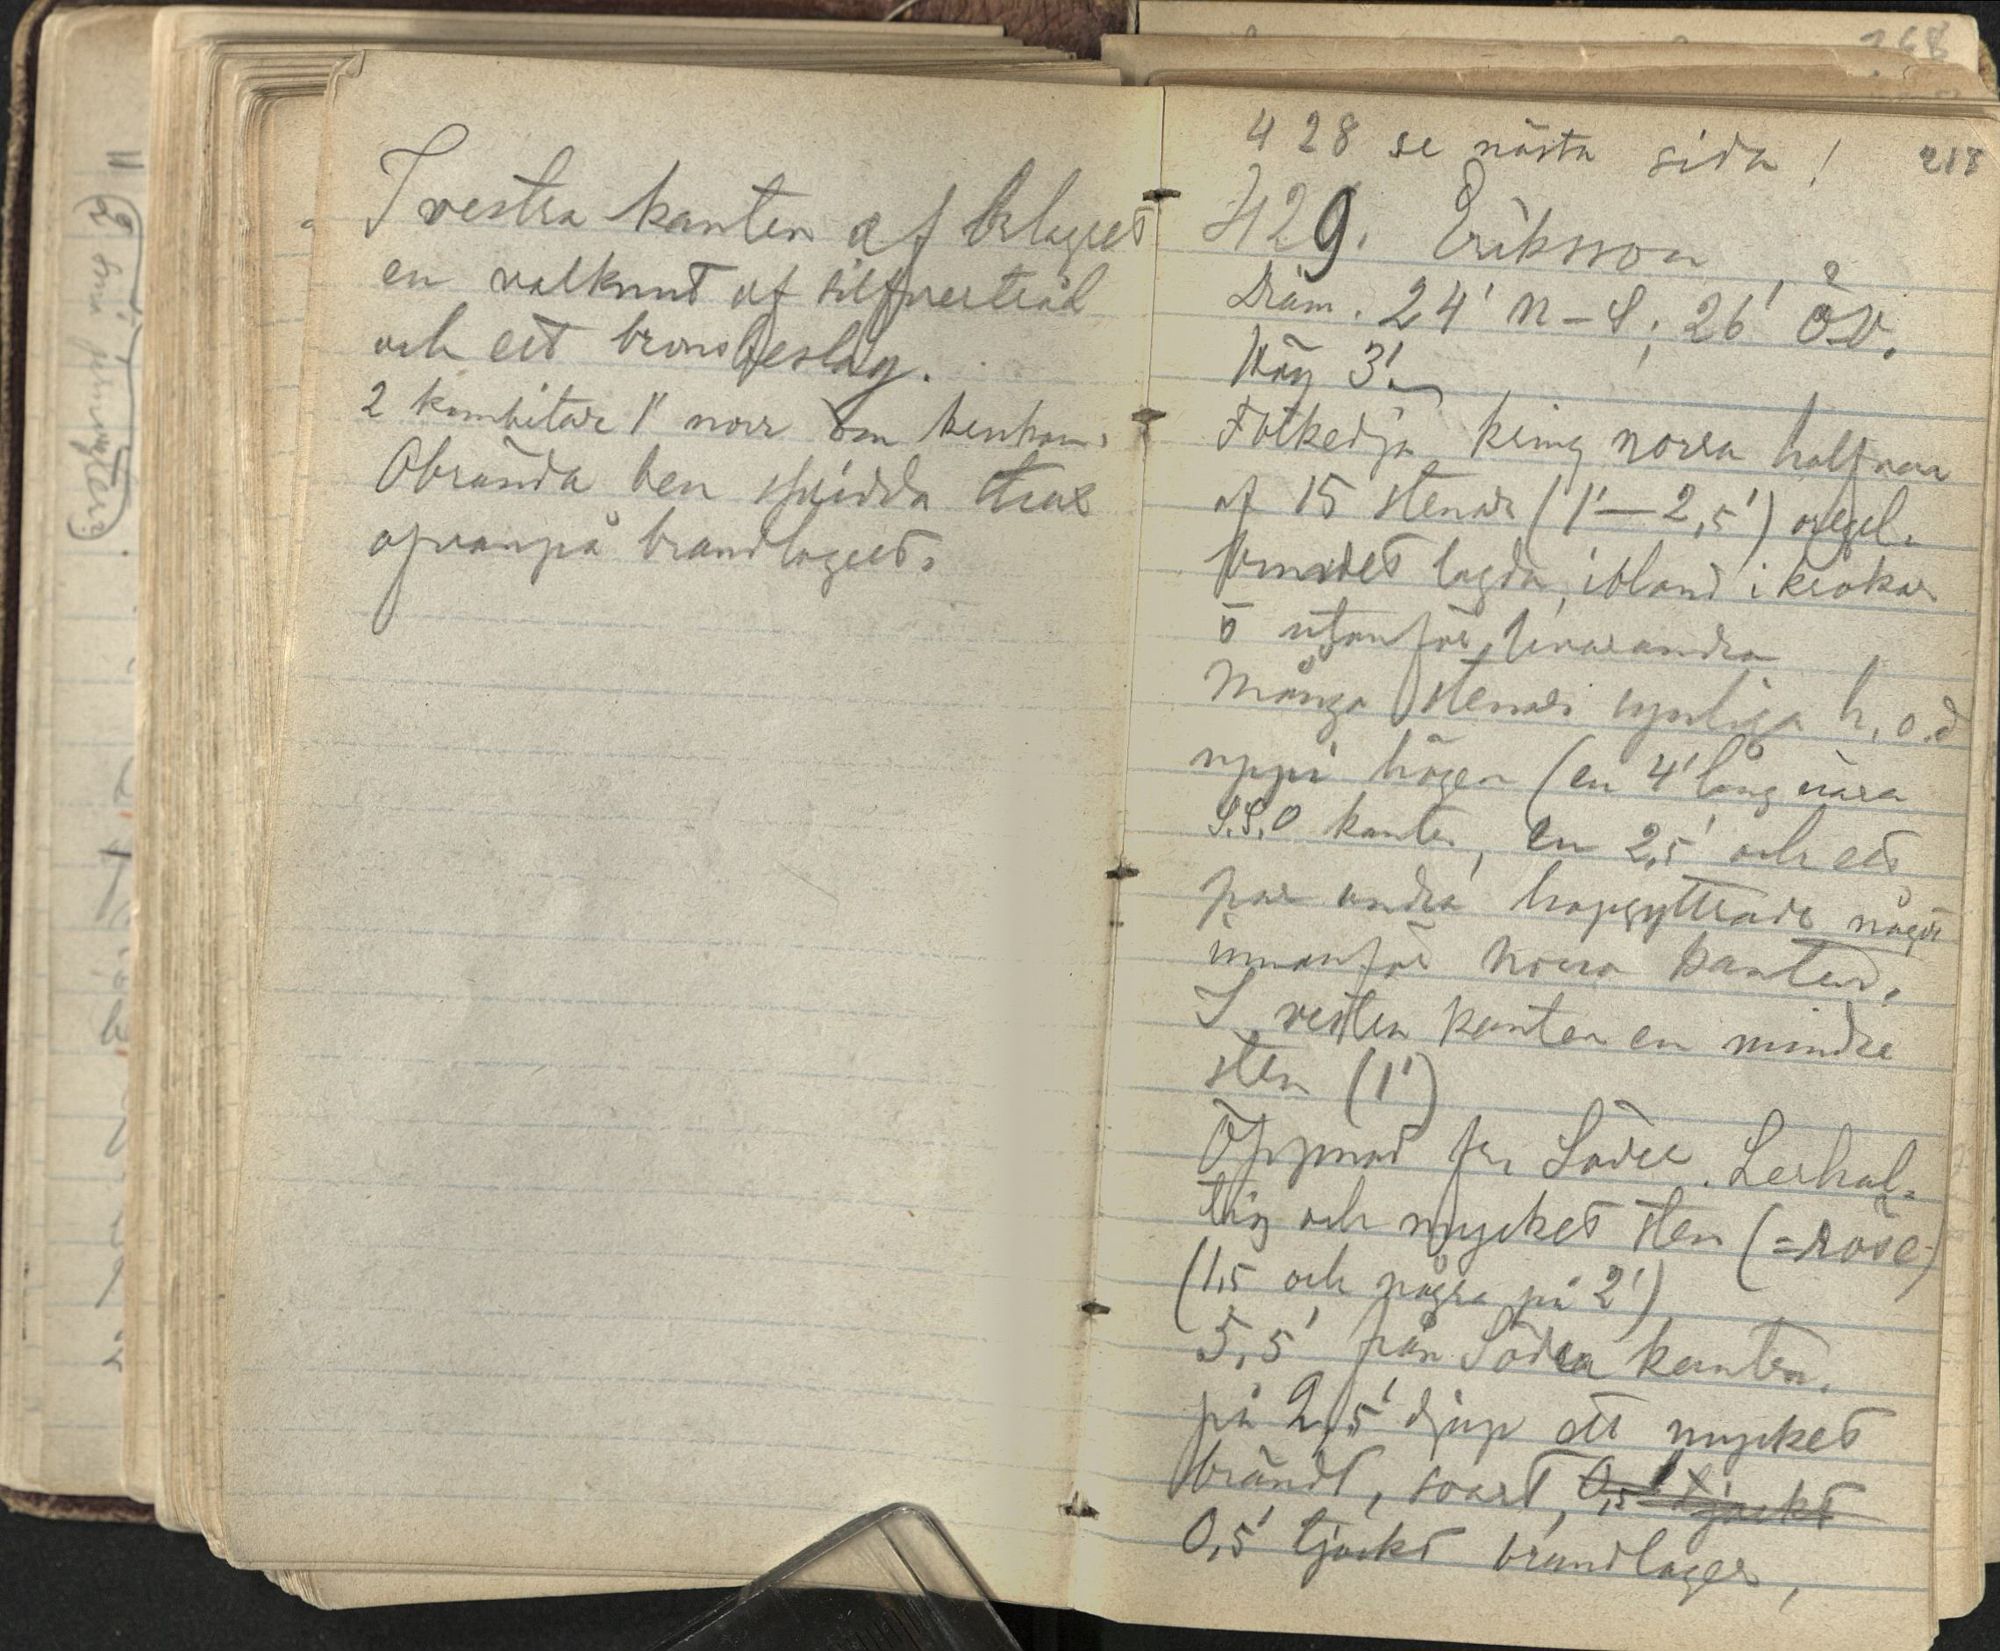 I vestra kanten af brlagret
en valknut af silfvertråd
och ett bronsbeslag.
2 kambitar 1" norr om benhom.
Obrända ben spridda strax
ofvanpå brandlagret.
428 se nästa sida! 218
429. Eriksson
Diam. 24' N–S; 26' ÖV.
Hög 3'.
Fotkedja kring norra halfvan
af 15 stenar (1'–2,5') oregel-
bundet lagda, ibland i krokar
o utanför hvarandra
Många stenar synliga h. o. d
uppi högen (en 4' lång nära
S.S.O kanten, en 2,5' och ett
par andra hopgyttrade något
innanför norra kanten.
I vestra kanten en mindre
sten (1')
Öppnad fr. Söder. Lerhal-
tig och mycket sten (=röse)
(1,5 och några på 2')
5,5' från Södra kanten.
på 2,5' djup ett mycket
brändt, svart, 0,5' tjockt
0,5' tjockt brandlager,